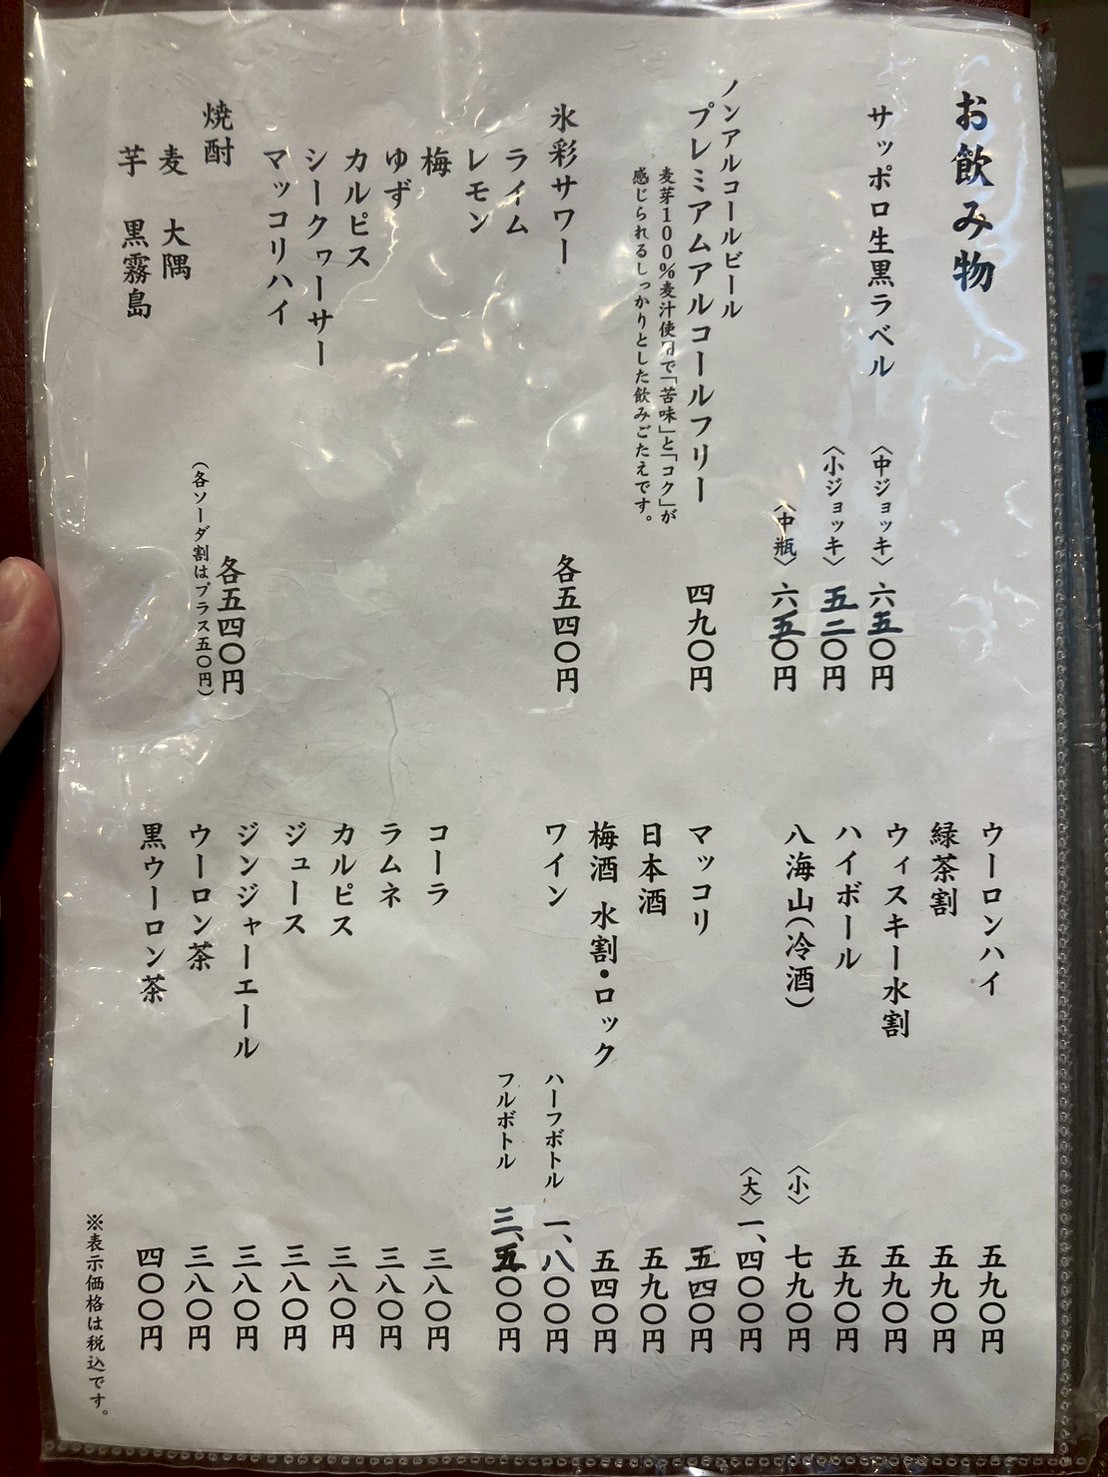 お飲み物
サッポロ生黒ラベル
〈中ジョッキ〉六五〇円
〈小ジョッキ〉五二〇円
〈中瓶〉六五〇円
ノンアルコールビール
プレミアムアルコールフリー 四九〇円
麦芽100%麦汁使用で「苦味」と「コク」が
感じられるしっかりとした飲みごたえです。
氷彩サワー 各五四〇円
ライム
レモン
梅
ゆず
カルピス
シークヮーサー
マッコリハイ
焼酎 各五四〇円
(各ソーダ割はプラス五〇円)
麦 大隅
芋 黒霧島
ウーロンハイ 五九〇円
緑茶割 五九〇円
ウィスキー水割 五九〇円
ハイボール 五九〇円
八海山(冷酒) 〈小〉 七九〇円
〈大〉一、四〇〇円
マッコリ 五四〇円
日本酒 五九〇円
梅酒 水割・ロック 五四〇円
ワイン ハーフボトル 一、八〇〇円
フルボトル 三、五〇〇円
コーラ 三八〇円
ラムネ 三八〇円
カルピス 三八〇円
ジュース 三八〇円
ジンジャーエール 三八〇円
ウーロン茶 三八〇円
黒ウーロン茶 四〇〇円
※表示価格は税込です。